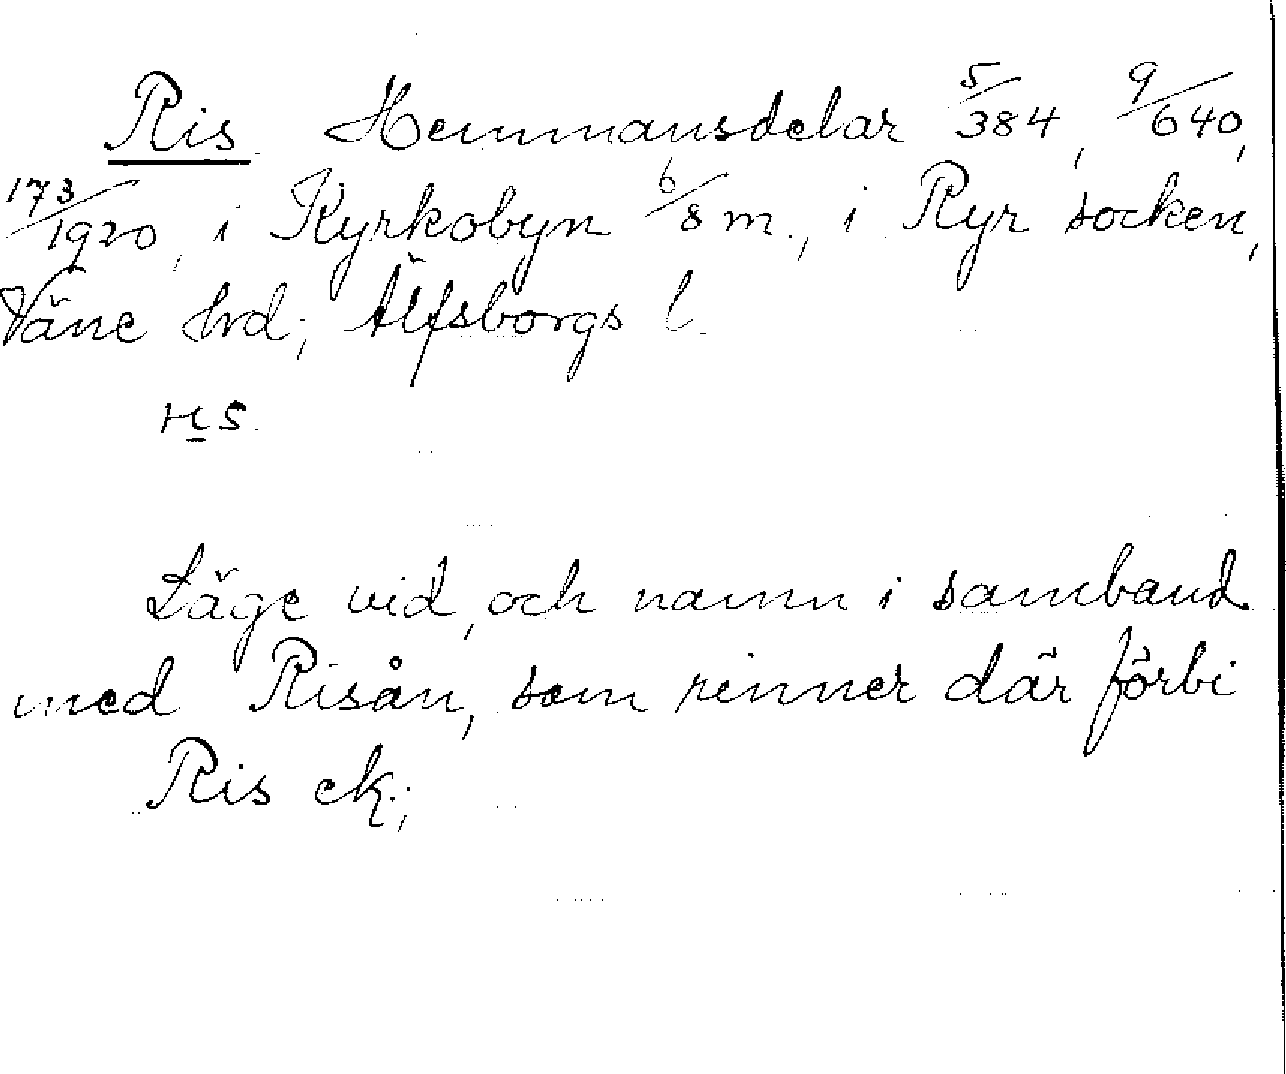 Ris. Hemmansdelar 5/384, 9/640,
173/1920, i Kyrkobyn 6/8 m., i Ryr socken,
Väne hrd; Älfsborgs l.
HS.
Läge vid, och namn i samband
med Risån, som rinner där förbi
Ris ek;